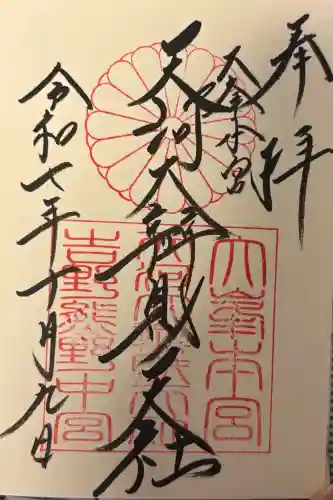 奉拝
大峯本宮
天河大辨財天社
令和七年十月九日
大峯本宮
吉野熊野中宮